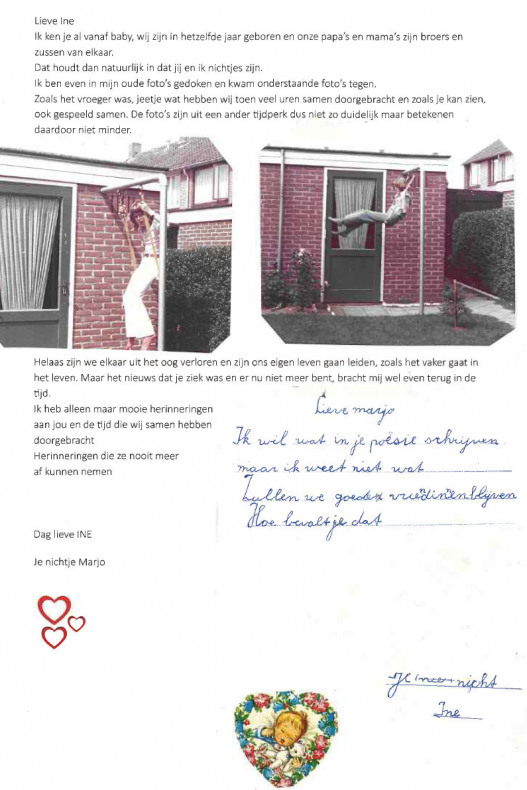 Lieve Ine
Ik ken je al vanaf baby, wij zijn in hetzelfde jaar geboren en onze papa's en mama's zijn broers en
zussen van elkaar.
Dat houdt dan natuurlijk in dat jij en ik nichtjes zijn.
Ik ben even in mijn oude foto's gedoken en kwam onderstaande foto's tegen.
Zoals het vroeger was, jeetje wat hebben wij toen veel uren samen doorgebracht en zoals je kan zien,
ook gespeeld samen. De foto's zijn uit een ander tijdperk dus niet zo duidelijk maar betekenen
daardoor niet minder.
Helaas zijn we elkaar uit het oog verloren en zijn ons eigen leven gaan leiden, zoals het vaker gaat in
het leven. Maar het nieuws dat je ziek was en er nu niet meer bent, bracht mij wel even terug in de
tijd.
Ik heb alleen maar mooie herinneringen
aan jou en de tijd die wij samen hebben
doorgebracht
Herinneringen die ze nooit meer
af kunnen nemen
Lieve marjo
Ik wil wat in je poësie schrijven
maar ik weet niet wat
Zullen we goede vriedinen blijven
Hoe bevalt je dat
Dag lieve INE
Je nichtje Marjo
nicht
Ine